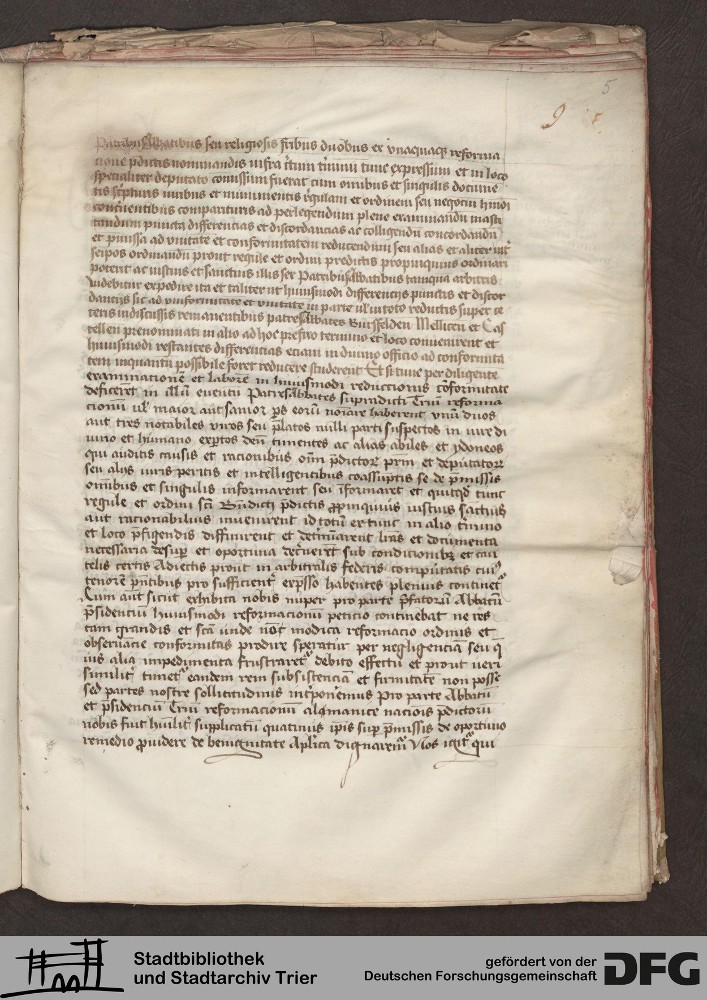 5
9
Patribus Abbatibus seu religiosis fribus duobus ex vnaquaq reforma
cione pdictis nominandis infra ctum tminu tunc expressum et in loco
specialiter deputato comissum fuerat cum omibus et singulis docume
tis scpturis iuribus et munimentis regulam et ordinem seu negocij hmoi
concnentibus comparituris ad perlegendum plene examinandu masti
candum puncta differencias et discordancias ac colligendu concordandu
et pmissa ad vnitate et conformitatem reducendum seu alias et aliter int
se ipos ordinandu prout regule et ordini predictis propinquius ordinari
poterit ac iustius et sanctius illis ser Patribus Abbatibus tanqua arbitris
videbitur expedire ita et taliter ut huiusmodi differencijs punctis et discor
dancijs sic ad vniformitate et vnitate in parte ul in toto reductis super ce
teris indiscussis remanentibus patres Abbates Bursfelden Mellicen et Cas
tellen prenominati in alio ad hoc prefixo termino et loco convenirent et
huiusmodi restantes differencias eciam in diuino officio ad conformita
tem inquantu possibile foret reducere studerent Et si tunc per diligente
examinacione et labore in huiusmodi reductionis coformitate
deficeret in illu euentu Patres Abbates supradicti Triu reforma
cionu ul maior aut sanior ps eoru noiare haberent vnu duos
aut tres notabiles viros seu platos nulli parti suspectos in iure di
uino et humano exptos deum timentes ac alias abiles et ydoneos
qui auditis causis et racionibus oim pdictor prm et deputator
seu alijs iuris peritis et intelligentibus coassuptis se de pmissis
omibus et singulis informarent seu iformaret et quitqd tunc
regule et ordini sci Bndicti pdictis propinquius iustius sactius
aut racionabilius inuenirent id totu ex tunc in alio tmino
et loco pfigendis diffinirent et detminarent lras et documenta
necessaria desup et oportuna decernerent sub condicionibz et cau
telis certis Adiectis prout in arbitralis federis computatis cui
tenore pntibus pro sufficienti expsso habentes plenius continet
Cum aut sicut exhibita nobis nuper pro parte pfatoru Abbatu
psidenciu huiusmodi reformacionu peticio continebat ne res
tam grandis et sca unde not modica reformacio ordinis et
obseruacie conformitas prodire speratur per negligenciam seu q
uis alia impedimenta frustraret debito effectu et prout ueri
similit timet eandem rem subsistencia et firmitate non posse
sed partes nostre sollicitudinis intponemus Pro parte Abbatu
et psidenciu Triu reformacionu alamanice nacois pdictoru
nobis fuit humilit supplicatu quatinus ipis sup pmissis de oportuno
remedio prouidere de benignitate Aplica dignarem Nos igit qui
Stadtbibliothek
und Stadtarchiv Trier
gefördert von der
Deutschen Forschungsgemeinschaft
DFG